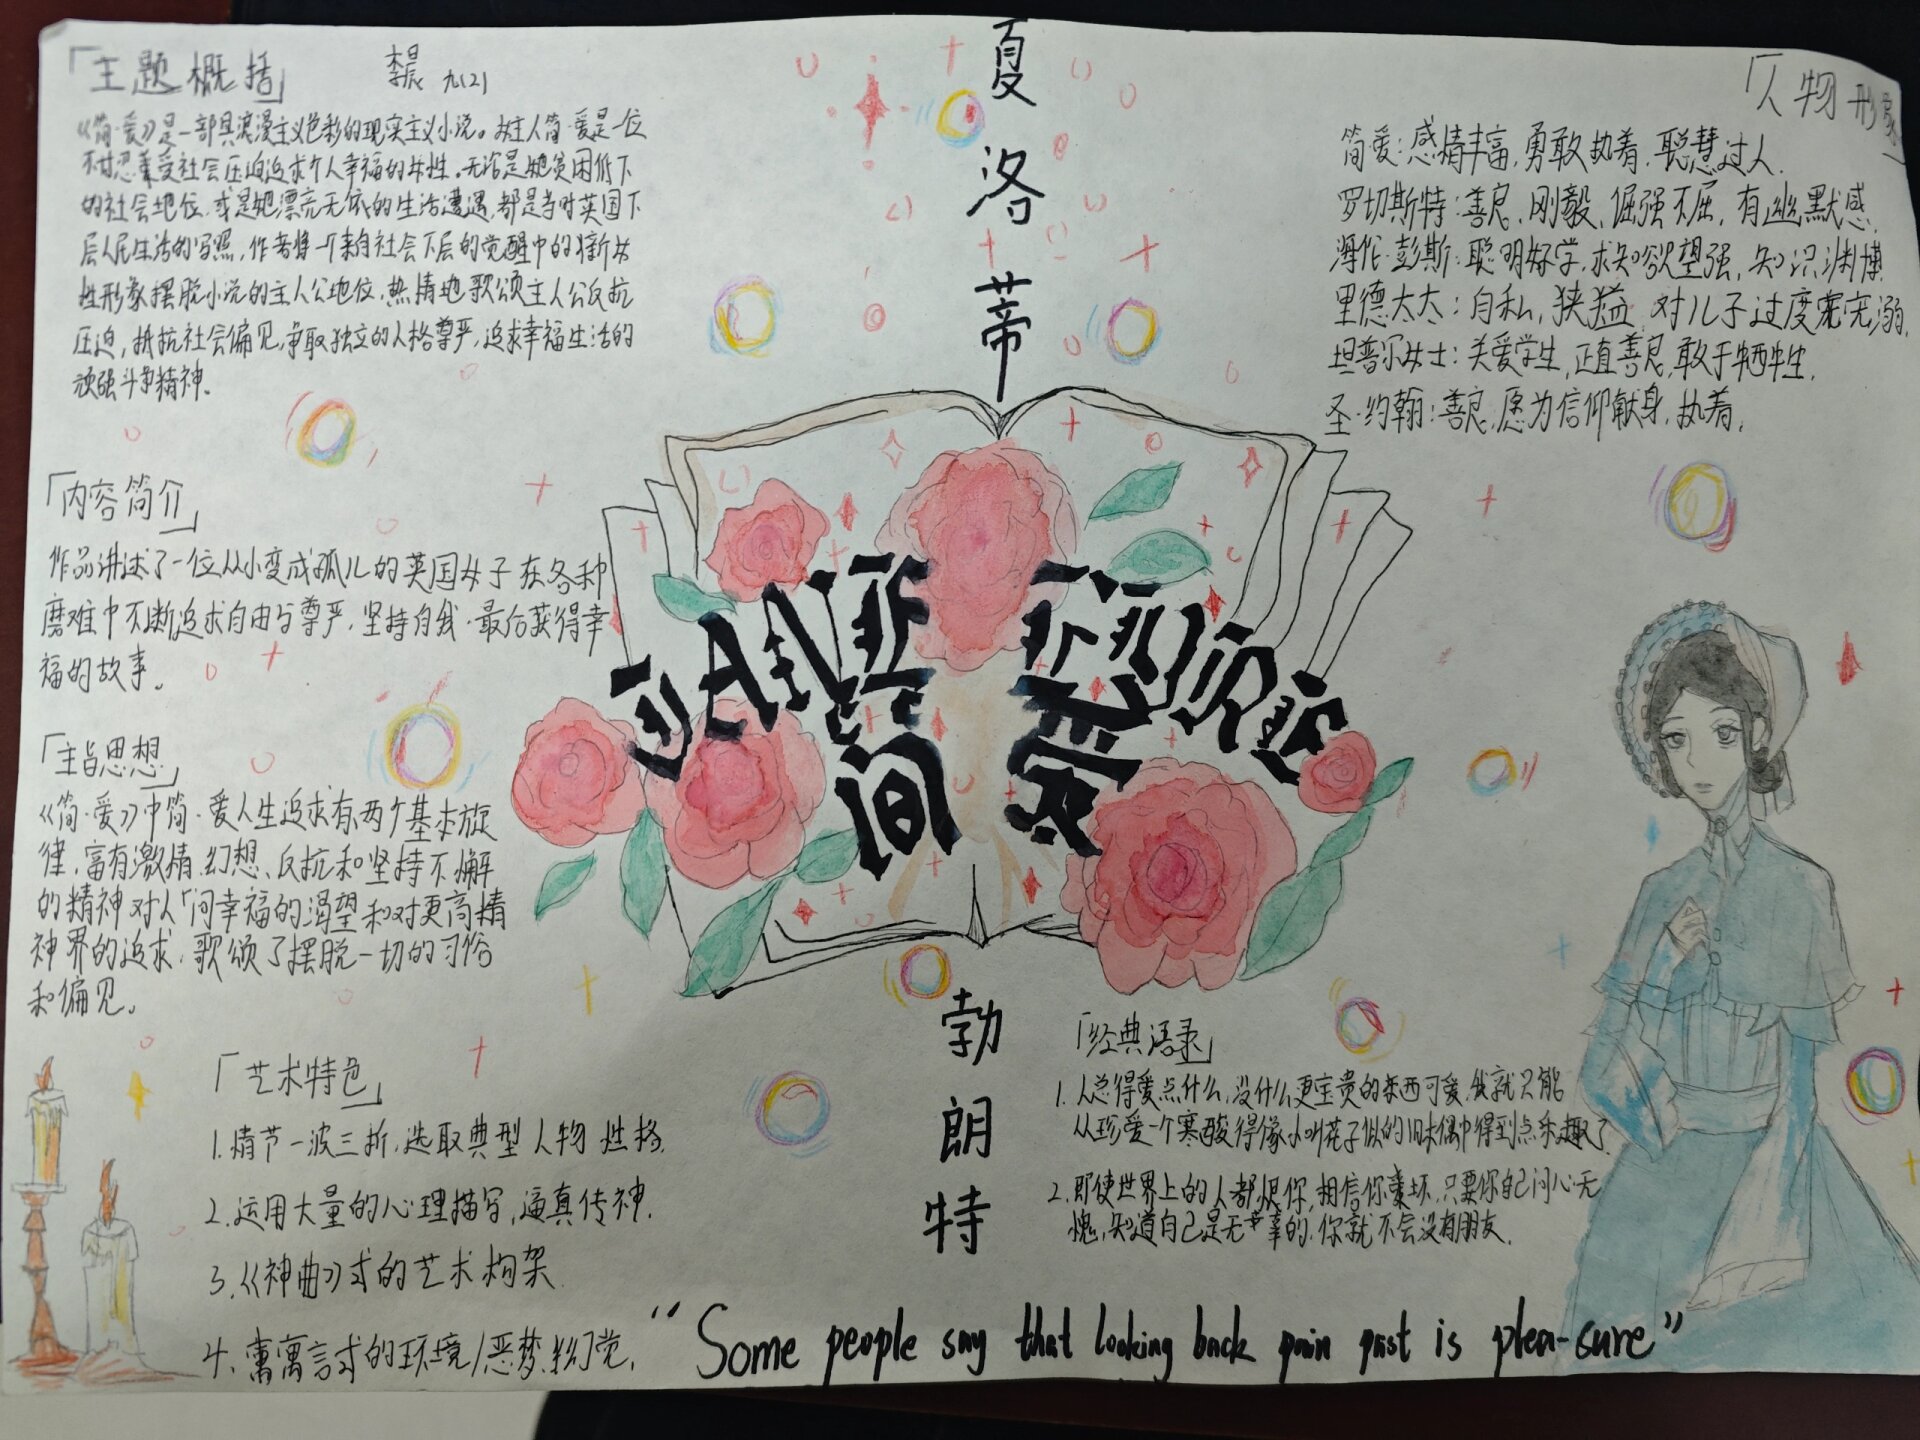 「主题概括」
李晨 九(2)
《简·爱》是一部具浪漫主义色彩的现实主义小说。女主人简·爱是一位
不甘忍受社会压迫追求个人幸福的女性。无论是她贫困低下
的社会地位,或是她漂亮无依的生活遭遇,都是当时英国下
层人民生活的写照,作者将一个来自社会下层的觉醒中的新女
性形象摆脱小说的主人公地位,热情地歌颂主人公反抗
压迫,抵抗社会偏见,争取独立的人格尊严,追求幸福生活的
顽强斗争精神。
「内容简介」
作品讲述了一位从小变成孤儿的英国女子在各种
磨难中不断追求自由与尊严,坚持自我,最后获得幸
福的故事。
「主旨思想」
《简·爱》中简·爱人生追求有两个基本旋
律,富有激情、幻想、反抗和坚持不懈
的精神对人间幸福的渴望和对更高精
神界的追求,歌颂了摆脱一切的习俗
和偏见。
「艺术特色」
1.情节一波三折,选取典型人物性格.
2.运用大量的心理描写,逼真传神.
3.《神曲》式的艺术构架
4.寓言式的环境/恶梦、幻觉.
夏洛蒂
JANE EYRE
简爱
勃朗特
「人物形象」
简爱:感情丰富,勇敢执着,聪慧过人.
罗切斯特:善良、刚毅、倔强不屈,有幽默感.
海伦·彭斯:聪明好学,求知欲望强,知识渊博.
里德太太:自私,狭隘,对儿子过度宠溺.
坦普尔女士:关爱学生,正直善良,敢于牺牲.
圣·约翰:善良,愿为信仰献身,执着.
「经典语录」
1.人总得爱点什么,没什么更宝贵的东西可爱,我就只能
从珍爱一个寒酸得像小叫花子似的旧木偶中得到点乐趣了
2.即使世界上的人都恨你,相信你真坏,只要你自己问心无
愧,知道自己是无辜的,你就不会没有朋友.
“Some people say that looking back pain past is plea-sure”